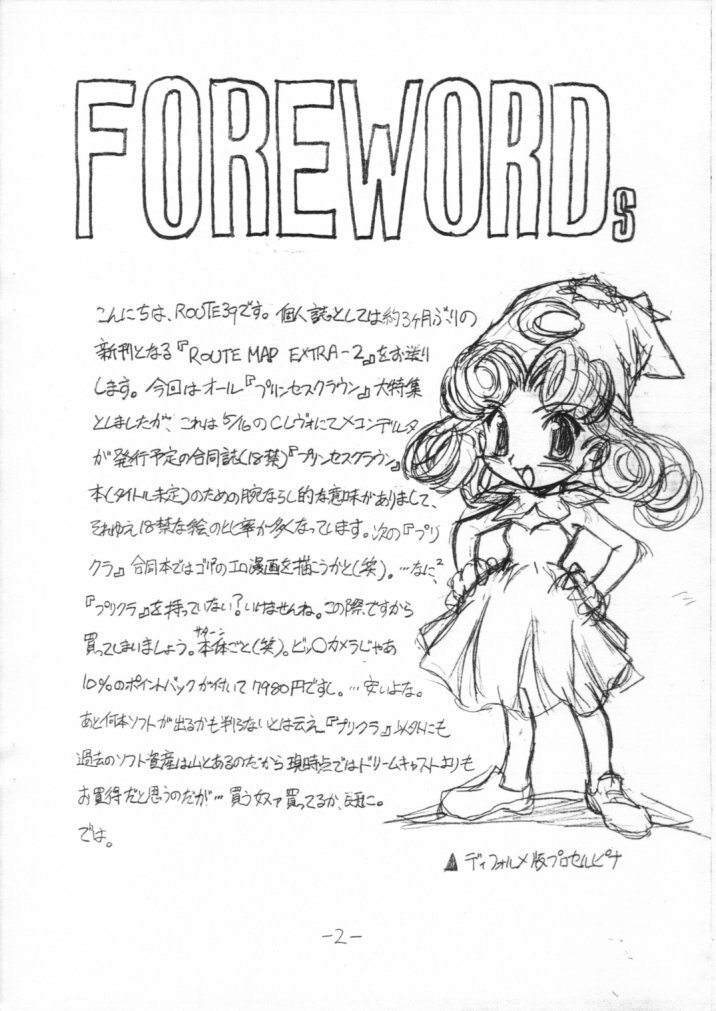 FOREWORDs
こんにちは、ROUTE39です。個人誌としては約3ヶ月ぶりの
新刊となる『ROUTE MAP EXTRA-2』をお送り
します。今回はオール『プリンセスクラウン』大特集
としましたが、これは5/16のCレヴォにてメコンデルタ
が発行予定の合同誌(18禁)『プリンセスクラウン』
本(タイトル未定)のための腕ならし的な意味がありまして、
それゆえ18禁な絵のヒじ率が多くなっています。次の『プリ
クラ』合同本ではゴリゴリのエロ漫画を描こうかと(笑)。…なに²、
『プリクラ』を持っていない?いけませんね。この際ですから
買ってしまいましょう。本体ごと(笑)。ビッ○カメラじゃあ
サターン
10%のポイントバックが付いて7980円ですし。…安いよな。
あと何本ソフトが出るかも判らないとは云え『プリクラ』以外にも
過去のソフト資産は山とあるのだから現時点ではドリームキャストよりも
お買得だと思うのだが…買う奴ァ買ってるか、既に。
では。
▲ディフォルメ版プロセルピナ
-2-